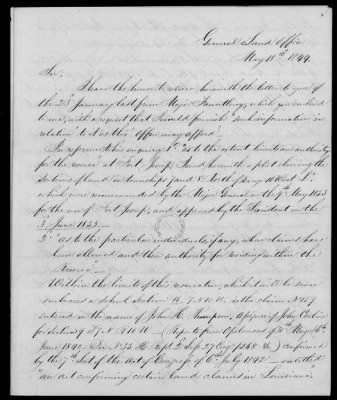 General Land Office
May 18th 1844.
Sir,
I have the honor to return herewith the letter to you of
the 23 January last from Major Saunthorp, which you enclosed
to me, with a request that I would furnish "such information in
relation to it as this Office may afford.
In response to his enquiry 1st "as to the extent limits and authority
for the reserve" at Fort Jesup, I send herewith a plot shewing the
sections of land in townships 7 and 8 North of Range 10 West La
which were recommended by the Major General on the 9th May 1833
for the use of Fort Jesup, and approved by the President on the
3 June 1833 —
2d "as to the particular individuals, if any, whose claims have
been allowed and their authority for residing within the
Reserve" —
Within the limits of this reservation, which it will be seen
embraces a school Section 16, 7. N 10 W. is the claim No 459
entered in the name of John H. Thompson, Assignee of John Cortés
for section 9 of 7 N. R 10 W — Report from Opelousas of 16
June 1840, Doc. No 33 H. Reps 2d Sess 27 Cong (368 ) confirmed
by the 7th Sect of the Act of Congress of 6th July 1842 — entitled
"an act confirming certain land claims in Louisiana."